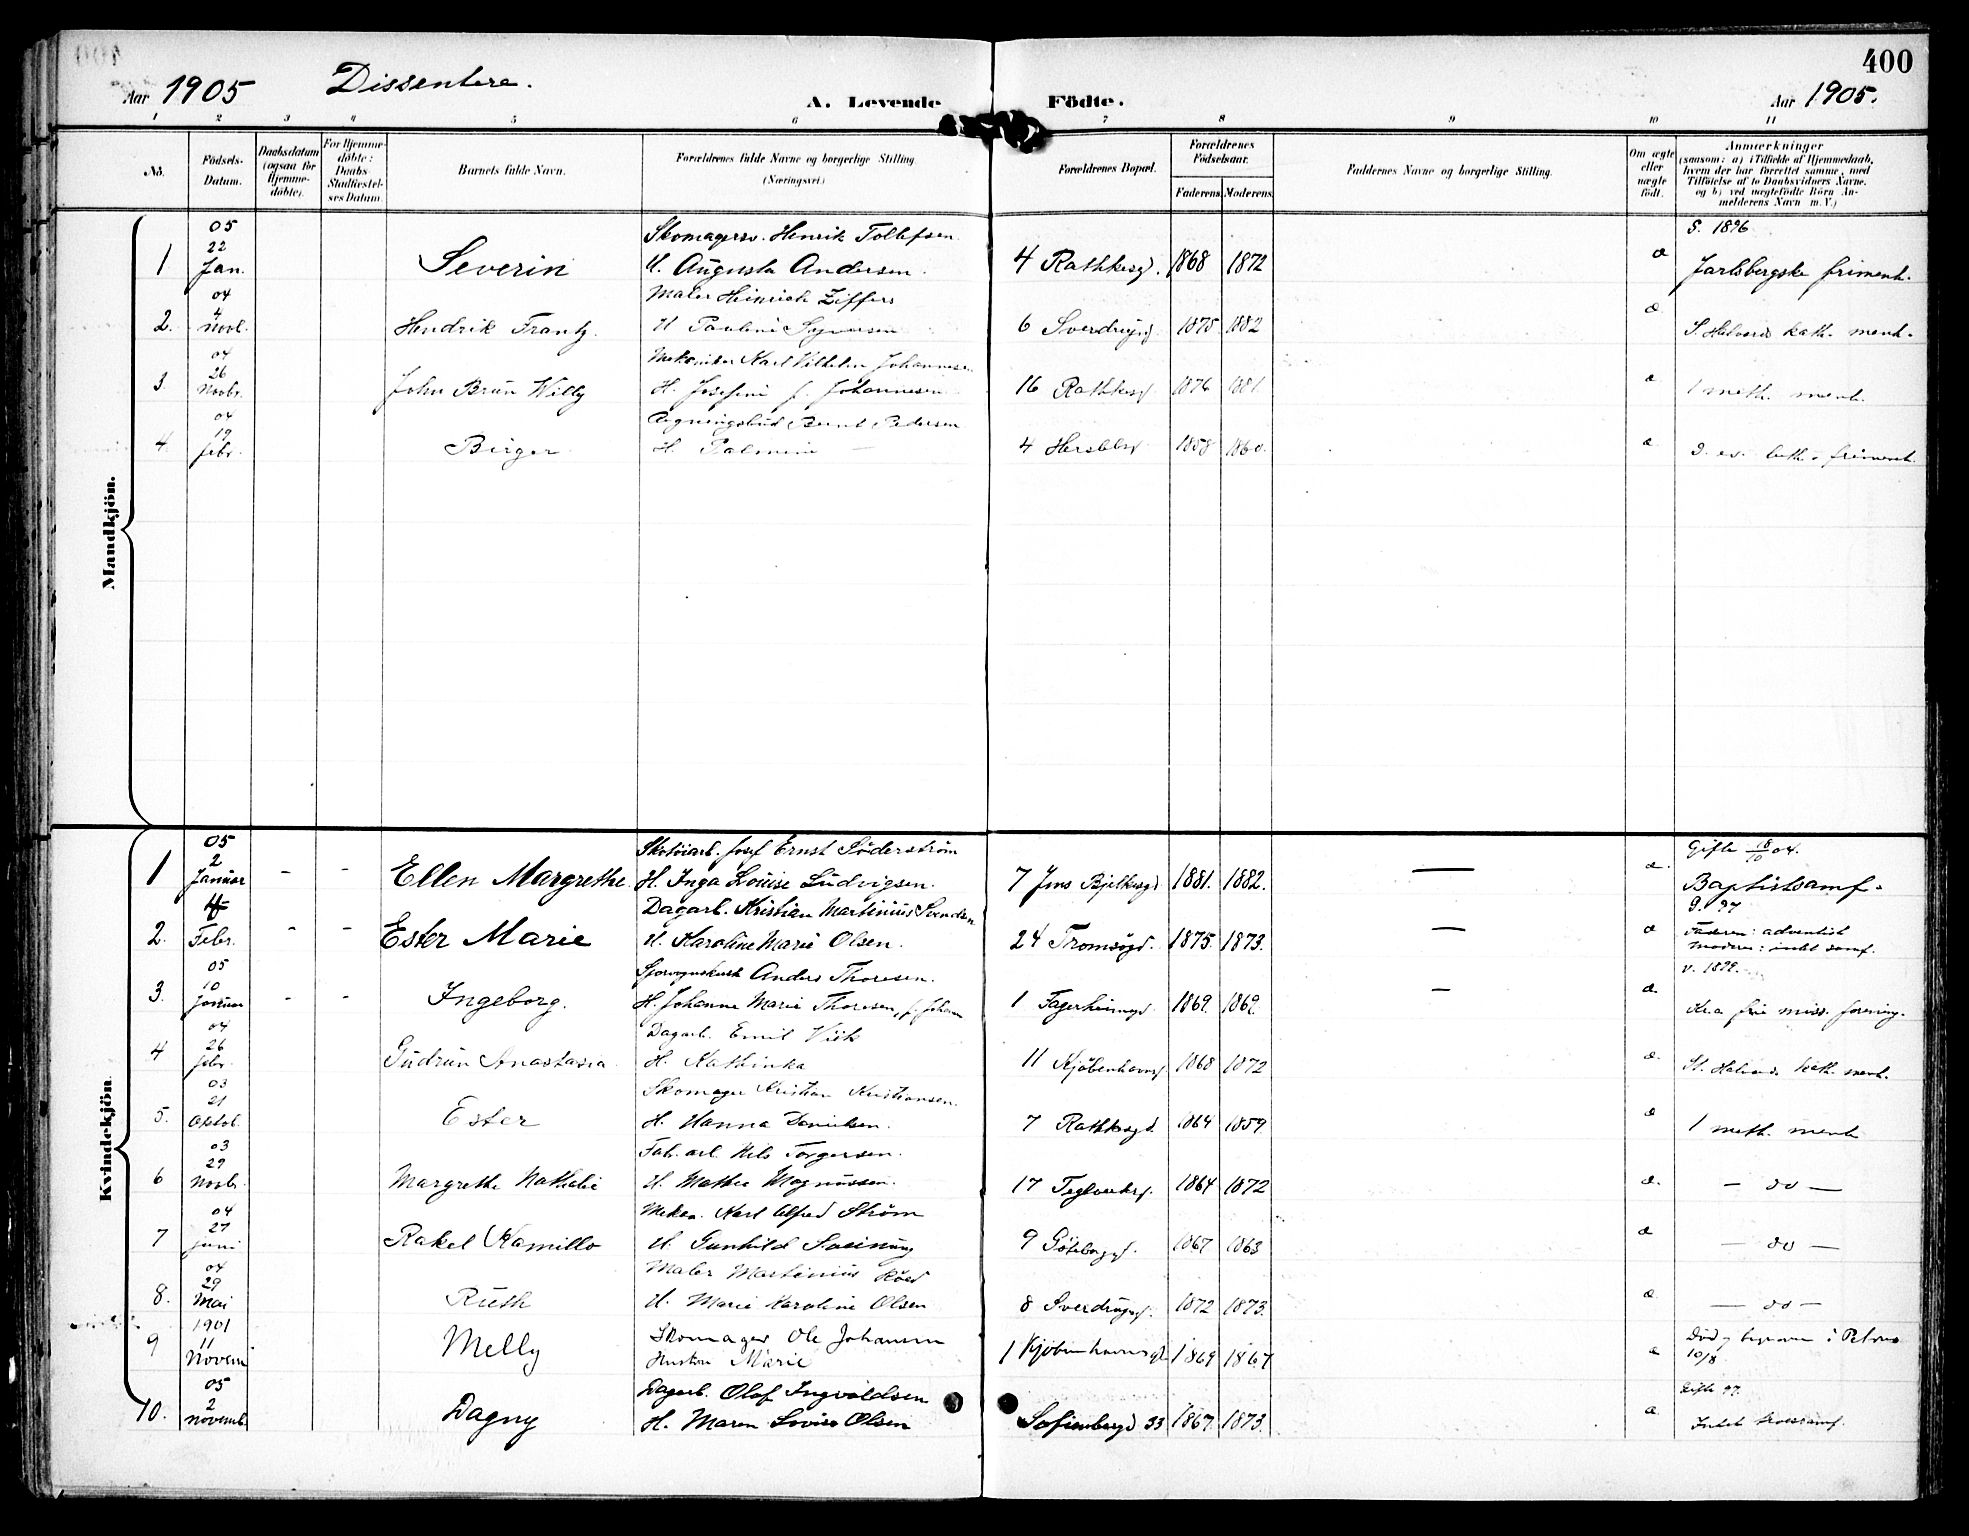 400
Aar 1905 Dissentere. A. Levende Födte. Aar 1905.
1 2 3 4 5 6 7 8 9 10 11
No. Födsels-Datum. Daabsdatum (ogsaa för Hjemmedöbte). For Hjemmedöbte: Daabs Stadfæstelses Datum. Barnets fulde Navn. Forældrenes fulde Navne og borgerlige Stilling. (Næringsvei.) Forældrenes Bopæl. Forældrenes Födselsaar. Faderens Moderens Faddernes Navne og borgerlige Stilling. Om ægte eller uægte födt. Anmærkninger (saasom: a) i Tilfælde af Hjemmedaab, hvem der har forrettet samme, med Tilföielse af to Daabsvidners Navne. og b) ved uægtefödte Börn Anmelderens Navn m. V.)
Mandkjön.
05 Skomagersv. Henrik Tollefsen G. 1896
1 22 Jan. Severin H. Augusta Andersen. 4 Rathkesgd. 1868 1872 æ Jarlsbergske frimenh.
04 Maler Heinrich Ziffers
2. 4 Novb. Hendrik Frantz. H. Pauline 6 Sverdrupsgd. 1875 1882 æ St. Halvards kath. menh.
04 Mekaniker Karl Vilhelm Johannesen
3 26 Novbr. John Brun Willy H. Josefine f. Johannesen 16 Rathkesgd. 1876 1881 æ 1 meth. menh.
04 Regningsbud Bernt Pedersen
4. 19 febr. Birger H. Palmine — 4 Herslebsg. 1858 1860. æ 2. ev. luth. frimenh.
Kvindekjön.
05 Skotöiarb. Josef Ernst Söderström Gifte 18/10 04.
1 2 Januar - - Ellen Margrethe. H. Inga Louise Ludvigsen. 7 Jens Bjelkesgd 1881. 1882. — æ. Baptistsamf.
Dagarb. Kristian Martinius Svendsen G. 97
2. 4 Febr. - - Ester Marie H. Karoline Marie Olsen. 24 Tromsögd. 1875. 1873. — æ Faderen: adventist
Moderen: intet samf.
05 Sporvognskusk Anders Thoresen. v. 1899.
3. 10 Januar - - Ingeborg. H. Johanne Marie Thoresen, f. Johann 1 Fagerheimgd. 1869. 1869. — æ. Kr.a frie miss. forening.
04 Dagarb. Emil Viik
4 26 febr. Gudrun Anastasia. H. Kathinka 11 Kjöbenhavnsg. 1868 1872 æ. St. Halvards kath. menh.
03 Skomager Kristian Kristiansen.
5. 21 Oktob. Ester H. Hanna Danielsen. 7 Rathkesgd. 1864 1859. æ 1 meth. menh
03 Fab. arb. Nils Torgersen.
6 29 Novbr. Margrethe Nathalie H. Mathea Magnussen. 17 Teglverksg. 1864 1872 æ. — do —
04 Mekan. Karl Alfred Ström
7 27 juni Rakel Kamilla H. Gunhild 9 Göteborgg. 1867 1863 æ — do —
04 Maler Martinius Röed
8. 29 Mai Ruth H. Marie Karoline Olsen 8 Sverdrupsg. 1872 1873. æ — do —
1901 Skomager Ole Johansen Död og begraven i Petrus
9 11 Novem Melly Hustru Marie 1 Kjöbenhavnsgd 1869 1867 æ 10/8
05 Dagarb. Olaf Ingvaldsen Gifte 97.
10. 2 novemb. Dagny H. Maren Lovise Olsen Sofienbergd 33 1867. 1873. æ Intet troessamf.